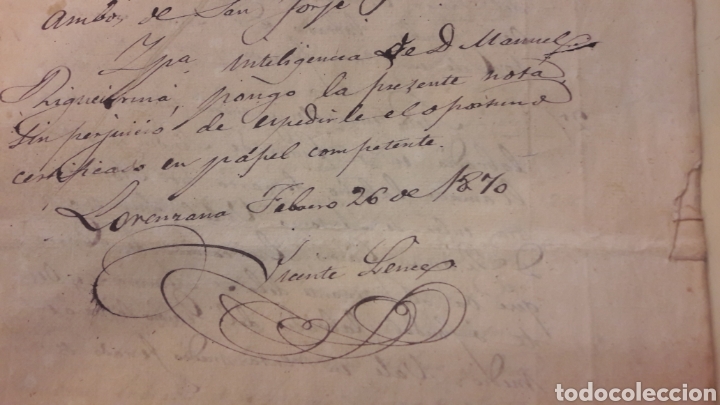 Ambos de San Jorge
Ypa inteligencia de D Manuel
pongo la presente nota
sin perjuicio de expedirle el oportuno
certificado en papel competente.
Lorenzana Febrero 26 de 1870
Vicente
todocoleccion
todocoleccion.net